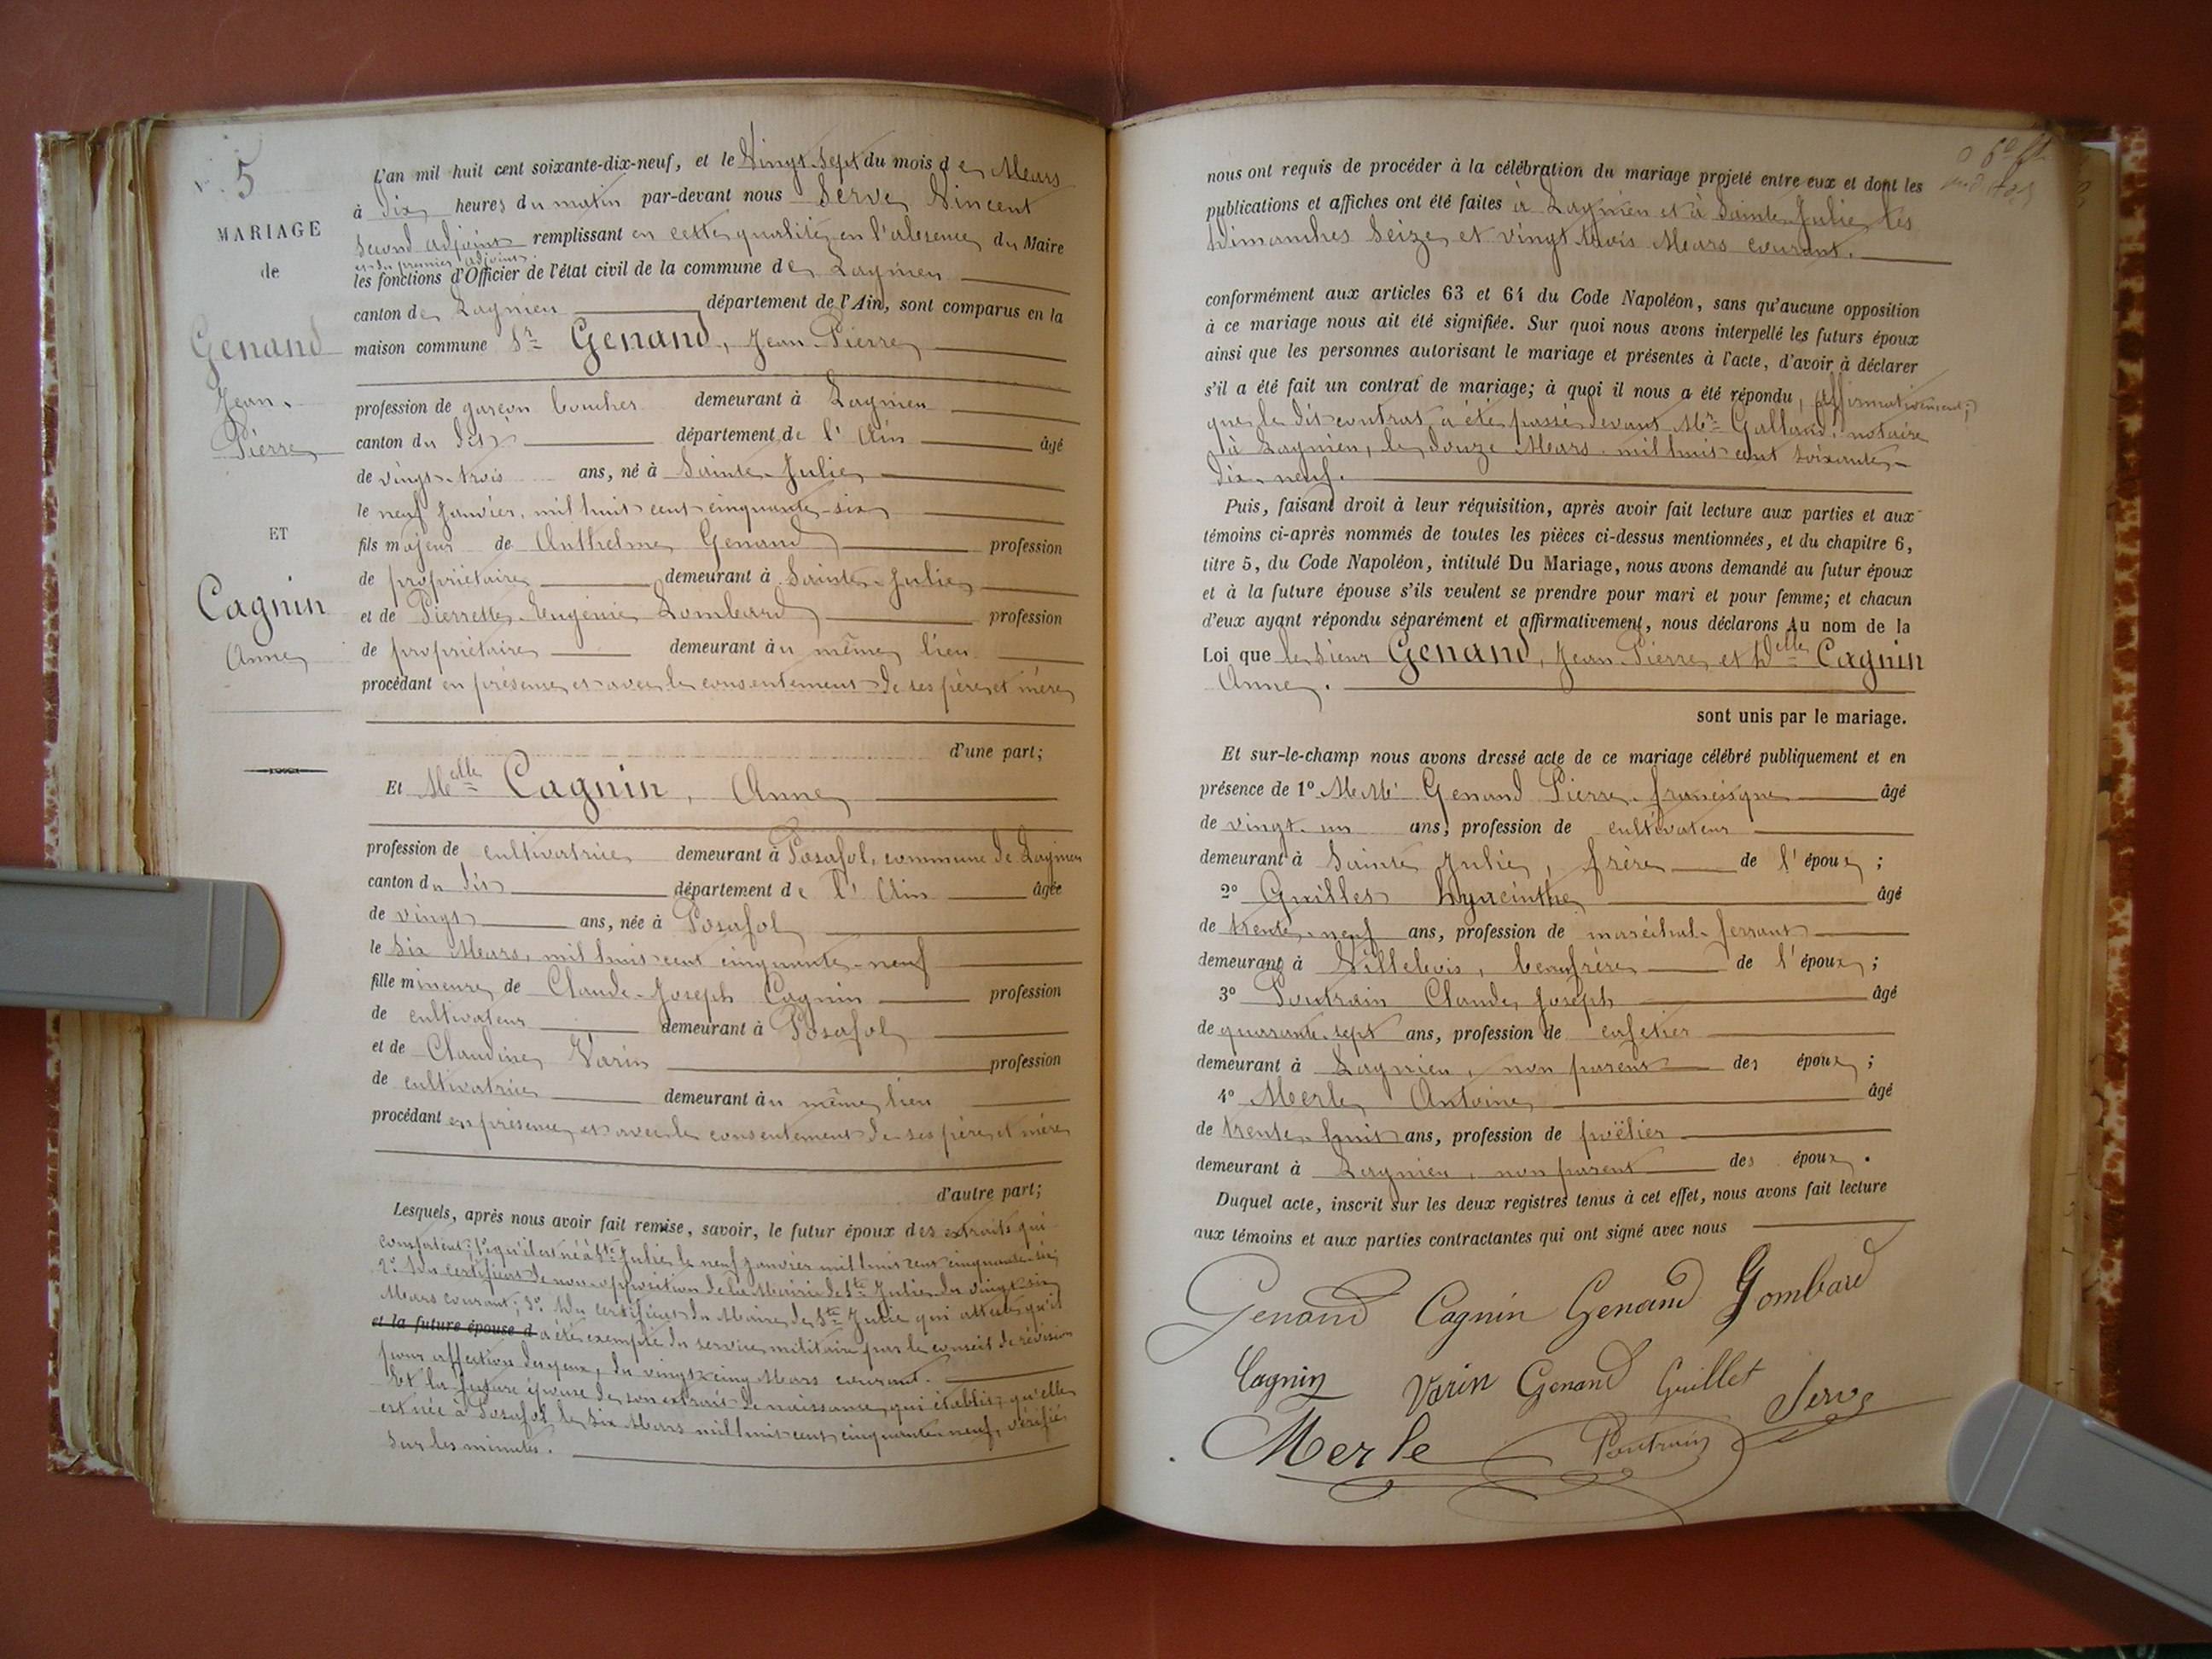 N. 5
MARIAGE
de
Genand
Jean-
Pierre
ET
Cagnin
Anne
L'an mil huit cent soixante-dix-neuf, et le Vingt-Sept du mois de Mars
à dix heures du matin par-devant nous Serve Vincent
second adjoint remplissant en cette qualité, en l'absence du Maire
et du premier adjoint
les fonctions d'Officier de l'état civil de la commune de Lagnieu
canton de Lagnieu département de l'Ain, sont comparus en la
maison commune Sr Genand, Jean-Pierre
profession de garçon boucher demeurant à Lagnieu
canton du dit département de l'Ain âgé
de vingt-trois ans, né à Sainte-Julie
le neuf Janvier, mil huit cent cinquante-six
fils majeur de Anthelme Genand profession
de propriétaire demeurant à Sainte-Julie
et de Pierrette-Eugénie Lombard profession
de propriétaire demeurant au même lieu
procédant en présence et avec le consentement de ses père et mère
d'une part;
Et Melle Cagnin, Anne
profession de cultivatrice demeurant à Posafol, commune de Lagnieu
canton du dit département de l'Ain âgée
de vingt ans, née à Posafol
le Six Mars, mil huit cent cinquante-neuf
fille mineure de Claude-Joseph Cagnin profession
de cultivateur demeurant à Posafol
et de Claudine Varin profession
de cultivatrice demeurant au même lieu
procédant en présence et avec le consentement de ses père et mère
d'autre part;
Lesquels, après nous avoir fait remise, savoir, le futur époux des extraits qui
constatent: 1° qu'il est né à Ste Julie le neuf janvier mil huit cent cinquante-six;
2° Un certificat de non-opposition de la Mairie de Ste Julie du vingt-six
Mars courant; 3° Un certificat du Maire de Ste Julie qui atteste qu'il
et la future épouse d a été exempté du service militaire par le conseil de révision
pour affection des yeux, du vingt-cinq Mars courant.
Et la future épouse de son extrait de naissance, qui établit, qu'elle
est née à Posafol le Six Mars mil huit cent cinquante-neuf, vérifié
sur les minutes.
nous ont requis de procéder à la célébration du mariage projeté entre eux et dont les
publications et affiches ont été faites à Lagnieu et à Sainte-Julie les
Dimanches Seize et vingt trois Mars courant.
conformément aux articles 63 et 64 du Code Napoléon, sans qu'aucune opposition
à ce mariage nous ait été signifiée. Sur quoi nous avons interpellé les futurs époux
ainsi que les personnes autorisant le mariage et présentes à l'acte, d'avoir à déclarer
s'il a été fait un contrat de mariage; à quoi il nous a été répondu, affirmativement;
que le dit contrat a été passé devant Mr Galland, notaire
à Lagnieu, le douze Mars mil huit cent soixante-
dix-neuf.
Puis, faisant droit à leur réquisition, après avoir fait lecture aux parties et aux
témoins ci-après nommés de toutes les pièces ci-dessus mentionnées, et du chapitre 6,
titre 5, du Code Napoléon, intitulé Du Mariage, nous avons demandé au futur époux
et à la future épouse s'ils veulent se prendre pour mari et pour femme; et chacun
d'eux ayant répondu séparément et affirmativement, nous déclarons Au nom de la
Loi que le sieur Genand, Jean-Pierre et Delle Cagnin
Anne.
sont unis par le mariage.
Et sur-le-champ nous avons dressé acte de ce mariage célébré publiquement et en
présence de 1° MM. Genand Pierre-francisque âgé
de vingt-un ans, profession de cultivateur
demeurant à Sainte Julie, frère de l'époux;
2° Guillet Hyacinthe âgé
de trente-neuf ans, profession de maréchal-ferrant
demeurant à Villebois, beau-frère de l'époux;
3° Poutrain Claude Joseph âgé
de quarante-sept ans, profession de cafetier
demeurant à Lagnieu, non parent des époux;
4° Merle Antoine âgé
de trente-huit ans, profession de poëlier
demeurant à Lagnieu, non parent des époux.
Duquel acte, inscrit sur les deux registres tenus à cet effet, nous avons fait lecture
aux témoins et aux parties contractantes qui ont signé avec nous
Genand Cagnin Genand Lombard
Cagnin Varin Genand Guillet Serve
Merle Poutrain